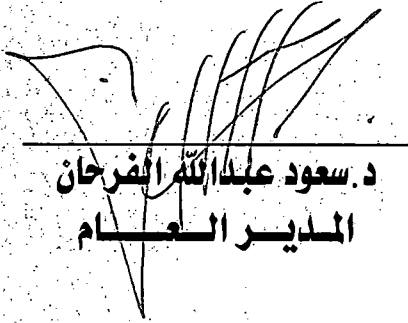 د. سعود عبدالله الفرحان
المدير العام